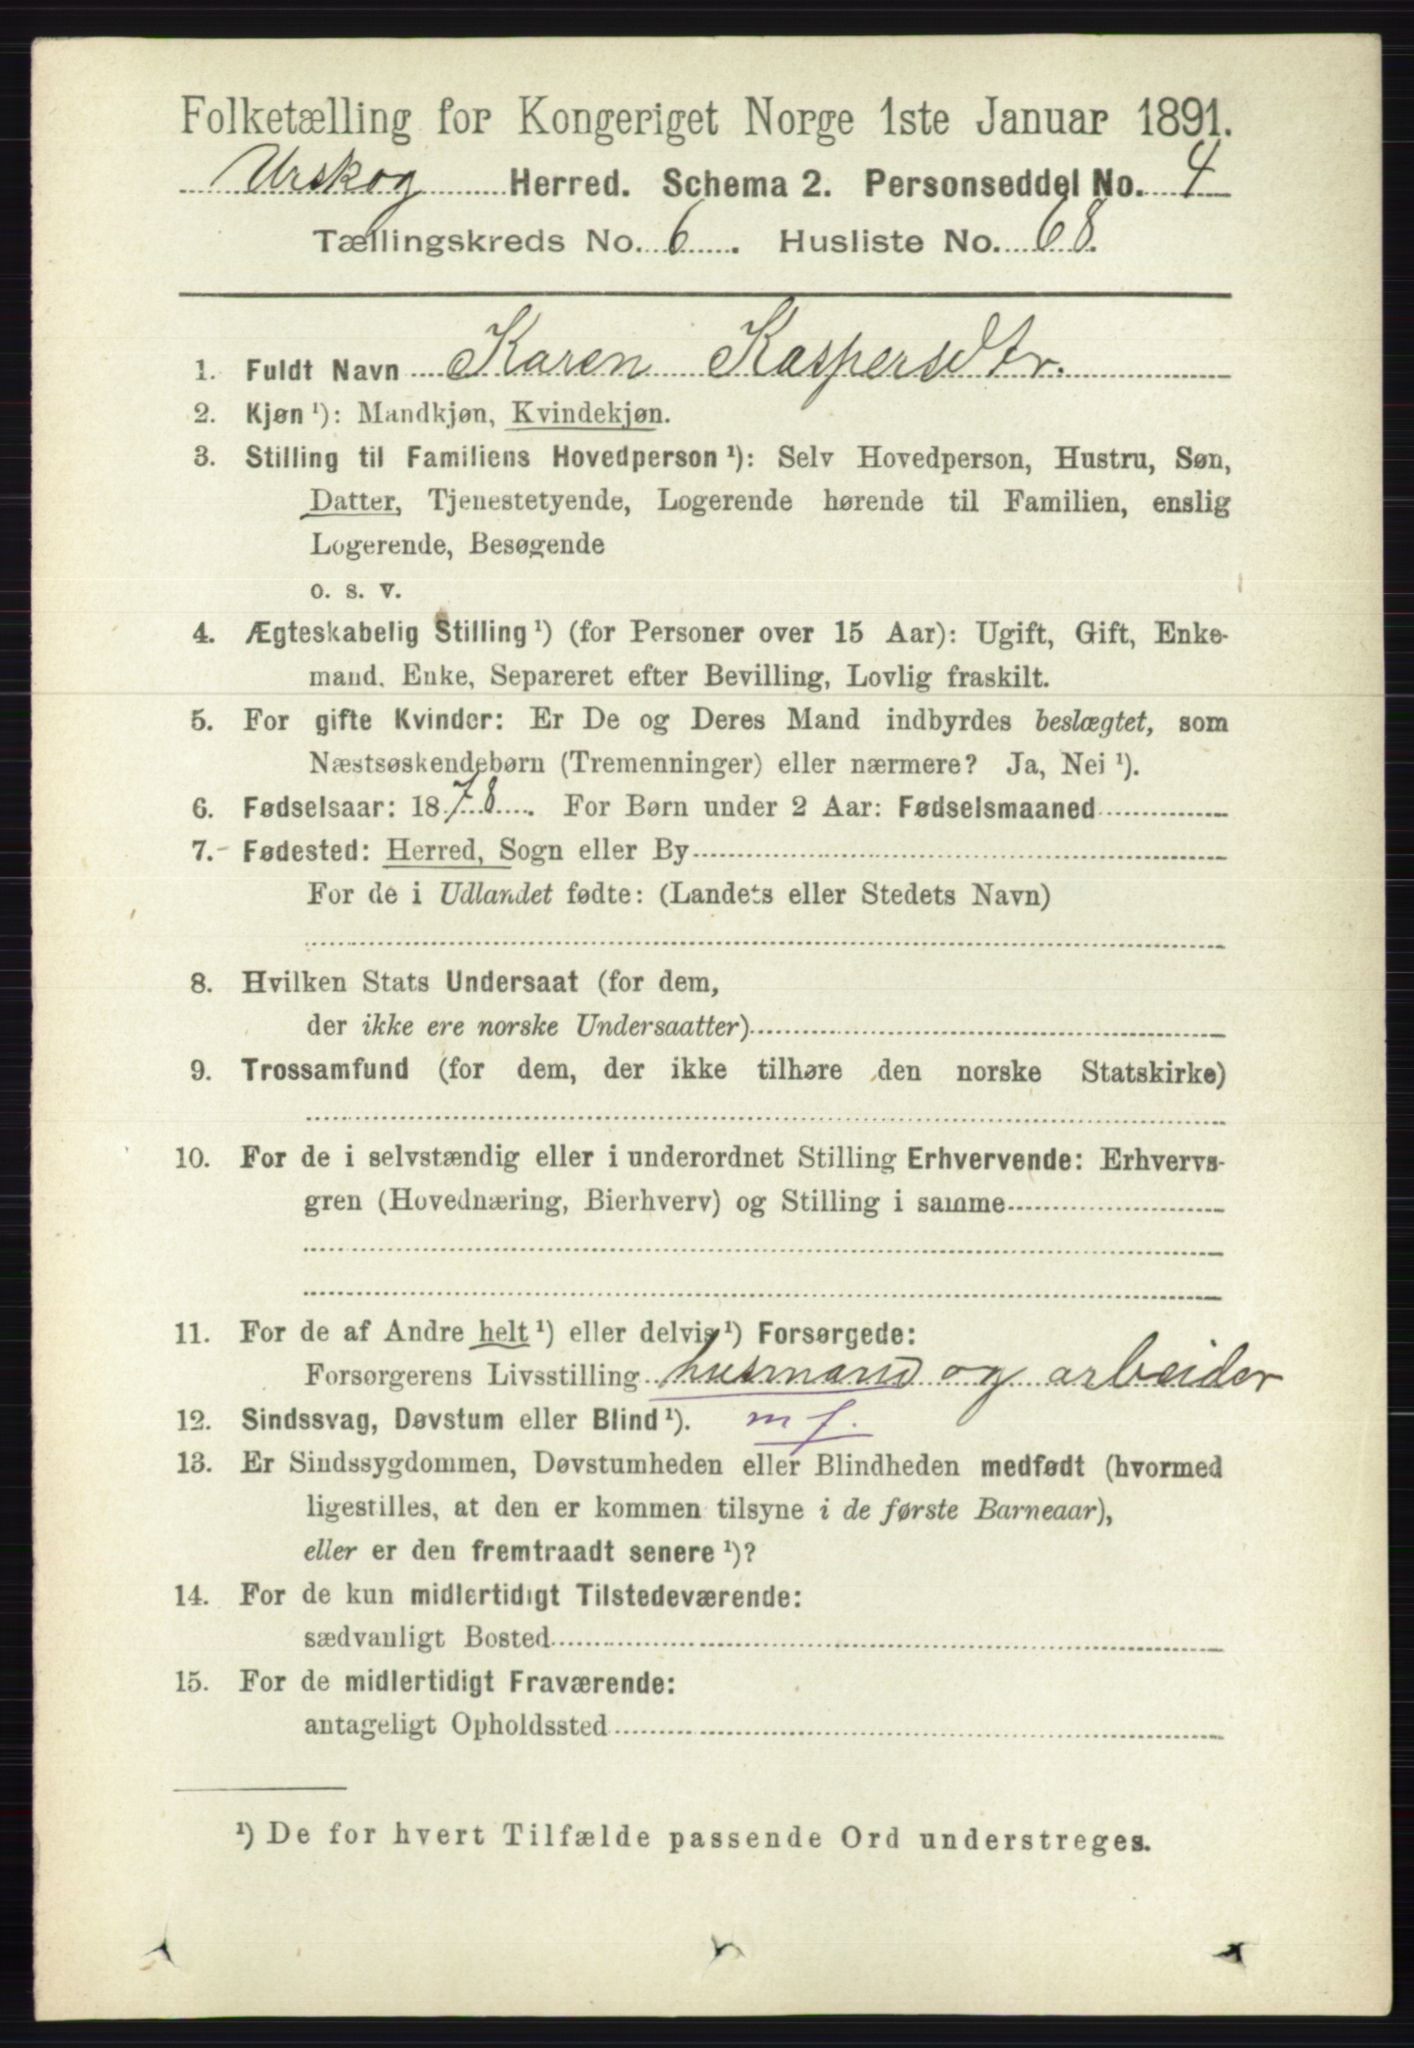 Folketælling for Kongeriget Norge 1ste Januar 1891.
Urskog Herred. Schema 2. Personseddel No. 4
Tællingskreds No. 6. Husliste No. 68.
1. Fuldt Navn Karen Kaspersdtr.
2. Kjøn ¹): Mandkjøn, Kvindekjøn.
3. Stilling til Familiens Hovedperson ¹): Selv Hovedperson, Hustru, Søn,
Datter, Tjenestetyende, Logerende hørende til Familien, enslig
Logerende, Besøgende
o. s. v.
4. Ægteskabelig Stilling ¹) (for Personer over 15 Aar): Ugift, Gift, Enke-
mand, Enke, Separeret efter Bevilling, Lovlig fraskilt.
5. For gifte Kvinder: Er De og Deres Mand indbyrdes beslægtet, som
Næstsøskendebørn (Tremenninger) eller nærmere? Ja, Nei ¹).
6. Fødselsaar: 1878. For Børn under 2 Aar: Fødselsmaaned
7. Fødested: Herred, Sogn eller By
For de i Udlandet fødte: (Landets eller Stedets Navn)
8. Hvilken Stats Undersaat (for dem,
der ikke ere norske Undersaatter)
9. Trossamfund (for dem, der ikke tilhøre den norske Statskirke)
10. For de i selvstændig eller i underordnet Stilling Erhvervende: Erhvervs-
gren (Hovednæring, Bierhverv) og Stilling i samme
11. For de af Andre helt ¹) eller delvis ¹) Forsørgede:
Forsørgerens Livsstilling husmand og arbeider
12. Sindssvag, Døvstum eller Blind ¹). m f.
13. Er Sindssygdommen, Døvstumheden eller Blindheden medfødt (hvormed
ligestilles, at den er kommen tilsyne i de første Barneaar),
eller er den fremtraadt senere ¹)?
14. For de kun midlertidigt Tilstedeværende:
sædvanligt Bosted
15. For de midlertidigt Fraværende:
antageligt Opholdssted
¹) De for hvert Tilfælde passende Ord understreges.